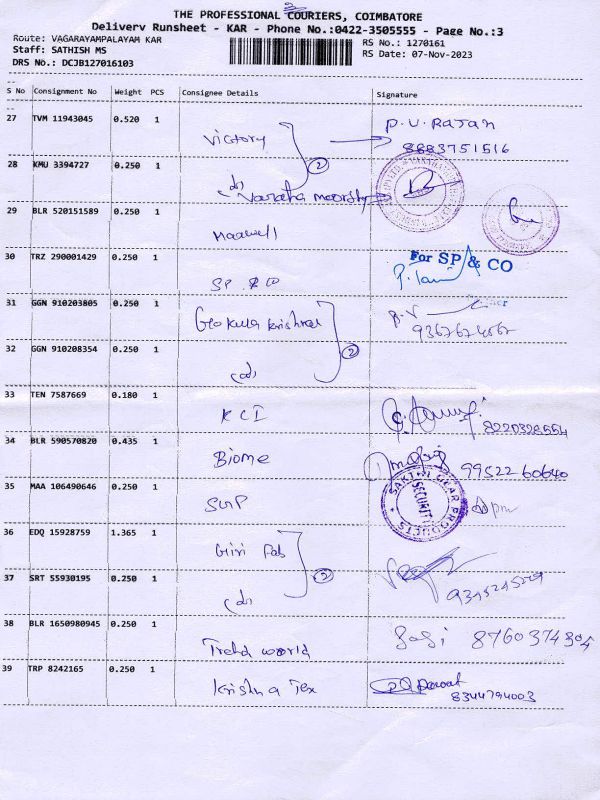 THE PROFESSIONAL COURIERS, COIMBATORE
Delivery Runsheet - KAR - Phone No.:0422-3505555 - Page No.:3
Route: VAGARAYAMPALAYAM KAR
RS No.: 1270161
Staff: SATHISH MS
RS Date: 07-Nov-2023
DRS No.: DCJB127016103
S No Consignment No Weight PCS Consignee Details Signature
27 TVM 11943045 0.520 1 Victory P.V. RAJAN
8883751516
28 KMU 3394727 0.250 1
29 BLR 520151589 0.250 1
30 TRZ 290001429 0.250 1 SP & CO For SP & CO
31 GGN 910203805 0.250 1 Gokula krishna
32 GGN 910208354 0.250 1 (2)
33 TEN 7587669 0.180 1 KCI
34 BLR 590570820 0.435 1 Biome 99522 60640
35 MAA 106490646 0.250 1 SAKTHI GEAR PRODUCTS SECURITY
36 EDQ 15928759 1.365 1 Giri Fab
37 SRT 55930195 0.250 1 (2)
38 BLR 1650980945 0.250 1 Trend world Sasi 8760374304
39 TRP 8242165 0.250 1 Krishna Tex
8344794003